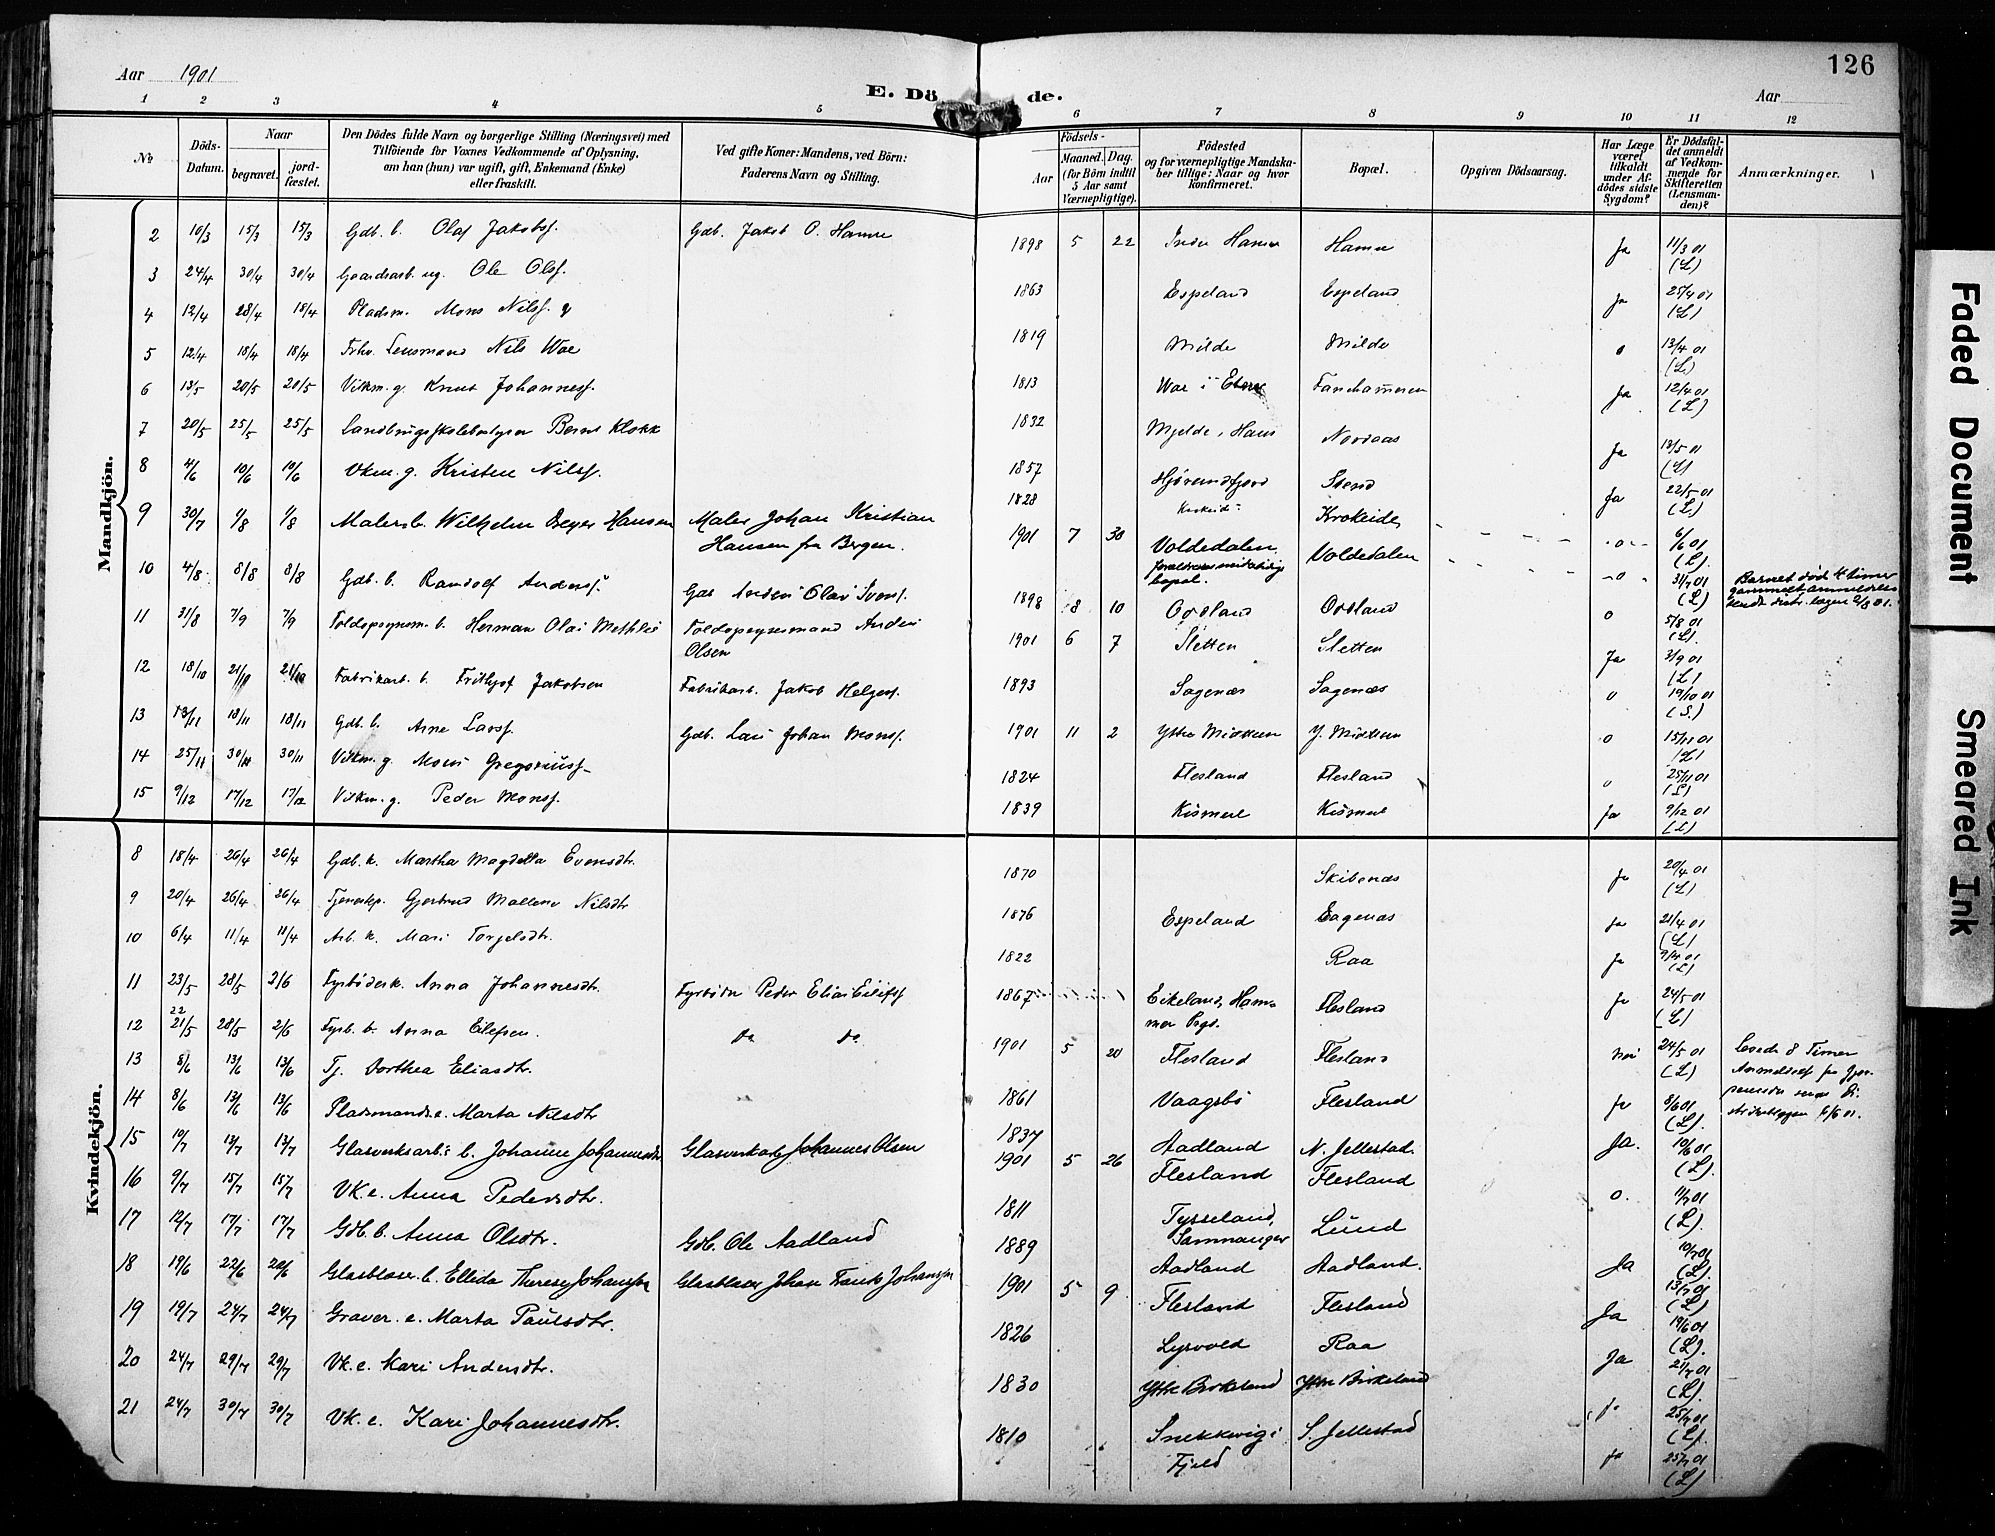 Aar 1901
E. Dö de.
126
Aar
1 2 3 4 5 6 7 8 9 10 11 12
No
Döds-Datum.
Naar
begravet.
jordfæstet.
Den Dödes fulde Navn og borgerlige Stilling (Næringsvei) med
Tilföiende for Voxnes Vedkommende af Oplysning,
om han (hun) var ugift, gift, Enkemand (Enke)
eller fraskilt.
Ved gifte Koner: Mandens, ved Börn:
Faderens Navn og Stilling.
Födsels-
Aar
Maaned. Dag.
(for Börn indtil
5 Aar samt
Værnepligtige).
Födested
og for værnepligtige Mandska-
ber tillige: Naar og hvor
konfirmeret.
Bopæl.
Opgiven Dödsaarsag.
Har Læge
været
tilkaldt
under Af-
dödes sidste
Sygdom?
Er Dödsfal-
det anmeldt
af Vedkom-
mende for
Skifteretten
(Lensman-
den)?
Anmærkninger.
Mandkjön.
2 10/3 15/3 15/3 Gdb. b. Olaf Jakobsf. Gdb. Jakob O. Hamre 1898 5 22 Indre Hamre Hamre Ja 11/3 01 (L)
3 24/4 30/4 30/4 Gaardsarb. ug. Ole Olsf. 1863 Espeland Espeland Ja 25/4 01 (L)
4 12/4 28/4 18/4 Pladsm. Mons Nilsf. g 1819 Milde Milde o 13/4 01 (L)
5 12/4 18/4 18/4 Frhv. Lensmand Nils Wae 1813 Wae i Etne Fanehammeren Ja 12/4 01 (L)
6 13/5 20/5 20/5 Vilkm. g. Knut Johannesf. 1832 Mjelde, Haus Nordaas Ja 13/5 01 (L)
7 20/5 25/5 25/5 Landbrugsskolebestyrer Bernt Klokk 1857 Hjörundfjord Stend Ja 22/5 01 (L)
8 4/6 10/6 10/6 Vkm. g. Kristen Nilsf. 1828 Krokeide Krokeide o 6/6 01 (L)
9 30/7 1/8 1/8 Malers b. Wilhelm Dreyer Hansen Maler Johan Kristian 1901 7 30 Voldedalen Voldedalen o 31/7 01 (L) Barnet död 4 timer
Hansen fra Bergen. forældrenes midlertidig
bopæl.
10 4/8 8/8 8/8 Gdb. b. Randolf Andersf. Gdb Anders Olai Ivers. 1898 8 10 Ordland Ordland o 5/8 01 (L)
11 31/8 7/9 7/9 Toldopsynsm. b. Herman Olai Mathhis Toldopsynsmand Anders 1901 6 7 Sletten Sletten Ja 3/9 01 (L)
Olsen
12 18/10 21/10 21/10 Fabrikarb. b. Frithjof Jakobsen Fabrikarb. Jakob Helges. 1893 Sagenæs Sagenæs o 19/10 01 (S.)
13 13/11 18/11 18/11 Gdb. b. Arne Larsf. Gdb. Lars Johan Monsf. 1901 11 2 Ytre Midttun Y. Midttun o 15/11 01 (L)
14 25/11 30/11 30/11 Vilkm. g. Mons Gregoriusf. 1824 Flesland Flesland o 25/11 01 (L)
15 9/12 17/12 17/12 Vilkm. g. Peder Monsf. 1839 Kismul Kismul Ja 9/12 01 (L)
Kvindekjön.
8 18/4 26/4 26/4 Gdb. k. Martha Magdella Evensdtr. 1870 Skibenæs Ja 20/4 01 (L)
9 20/4 26/4 26/4 Tjenestep. Gjertrud Mallene Nilsdtr 1876 Espeland Sagenæs Ja 21/4 01 (L)
10 6/4 11/4 11/4 Arb. k. Mari Torgelsdtr. 1822 Raa Ja 9/4 01 (L)
11 23/5 28/5 2/6 Fyrböderk. Anna Johannesdtr. Fyrböder Peder Elias Eilefsf 1867 Eikeland, Ham- Flesland Ja 24/5 01 (L)
mer Prgd.
12 22 21/5 28/5 2/6 Fyrb. b. Anna Eilefsen. do do 1901 5 20 Flesland Flesland Nei 24/5 01 (L) Levede 8 Timer
13 8/6 13/6 13/6 Tj. Dorthea Eliasdtr. 1861 Vaagsbö Flesland Ja 8/6 01 (L)
14 8/6 13/6 13/6 Pladsmands e. Marta Nilsdtr 1837 Aadland N. Jellestad. Ja. 10/6 01 (L)
15 10/7 13/7 13/7 Glasverksarb.s b. Johanne Johannesdtr Glasverkarb Johannes Olsen 1901 5 26 Flesland Flesland o. 11/7 01 (L)
16 9/7 15/7 15/7 VK e. Anna Pedersdtr. 1811 Tysseland, Lund 10/7 01 (L)
Sammanger
17 12/7 17/7 17/7 Gdb. b. Anna Olsdtr. Gdb. Ole Aadland 1889 Aadland Aadland. Ja 13/7 01 (L)
18 19/6 22/6 22/6 Glasblæser. b. Ellida Therese Johansen Glasblæser Johan Frants Johansen 1901 5 9 Flesland Flesland Ja 19/6 01 (L)
19 19/7 24/7 24/7 Graver. e. Marta Paulsdtr. 1826 Lyrvold Raa Ja 21/7 01 (L)
20 24/7 29/7 29/7 Vk. e. Kari Andersdtr. 1830 Ytre Birkeland Ytre Birkeland Ja 25/7 01 (L)
21 24/7 30/7 30/7 Vk. e. Kari Johannesdtr. 1810 Snekkevig i S. Jellestad Ja 25/7 01 (L)
Fjeld
Faded Document
Smeared Ink